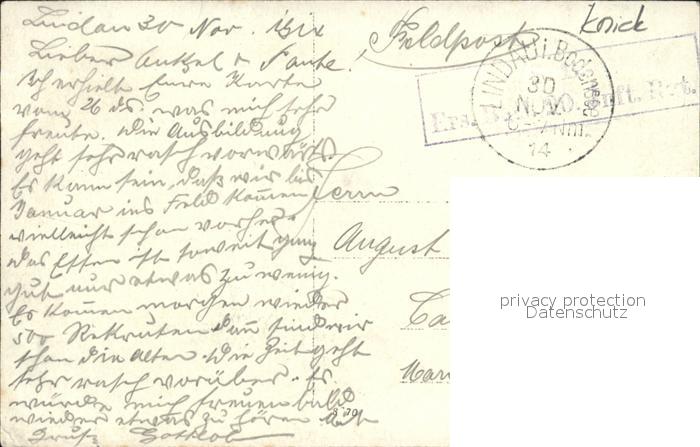 Lindau 30 Nov. 1914
Lieber Onkel & Tante.
Ich erhielt Eure Karte
vom 26 ds. was mich sehr
freute. Die Ausbildung
geht sehr rasch vorwärts.
Es kann sein, daß wir bis
Januar ins Feld kommen
vielleicht schon vorher.
das Essen ist soweit ganz
gut nur etwas zu wenig.
Es kommen morgen wieder
500 Rekruten dann sind wir
schon die alten. Die Zeit geht
sehr rasch vorüber. Es
würde mich freuen bald
wieder etwas zu hören
Gruß Gottlob
Feldpost
knick
LINDAU i. Bodensee
30
NOV.
Nm.
14
Ers. Inft. Rgt.
Herrn
August
privacy protection
Datenschutz